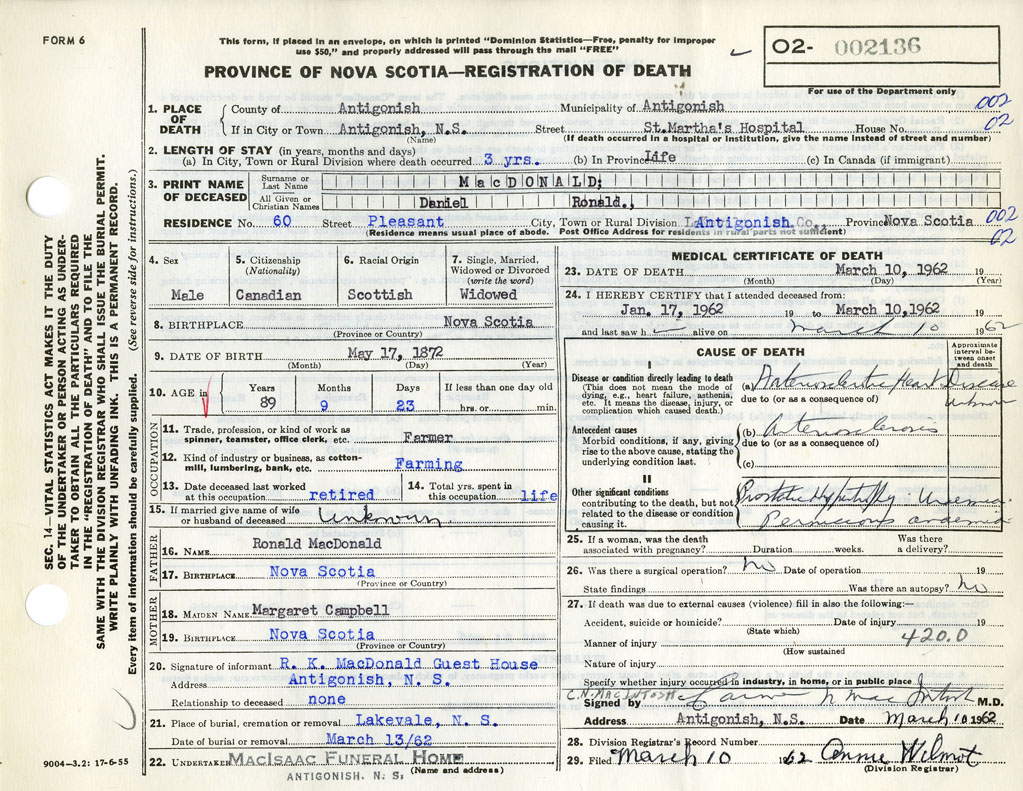 FORM 6
This form, if placed in an envelope, on which is printed "Dominion Statistics—Free, penalty for improper
use $50," and properly addressed will pass through the mail "FREE"
PROVINCE OF NOVA SCOTIA—REGISTRATION OF DEATH
O2- 002136
For use of the Department only
002
02
1. PLACE OF DEATH { County of Antigonish Municipality of Antigonish
If in City or Town Antigonish, N.S. Street St.Martha's Hospital House No.
(Name) (If death occurred in a hospital or institution, give the name instead of street and number)
2. LENGTH OF STAY (in years, months and days)
(a) In City, Town or Rural Division where death occurred 3 yrs. (b) In Province Life (c) In Canada (if immigrant)
3. PRINT NAME OF DECEASED
Surname or Last Name MacDONALD:
All Given or Christian Names Daniel Ronald.,
RESIDENCE No. 60 Street Pleasant City, Town or Rural Division Antigonish Co. Province Nova Scotia
002
62
(Residence means usual place of abode. Post Office Address for residents in rural parts not sufficient)
4. Sex
Male
5. Citizenship
(Nationality)
Canadian
6. Racial Origin
Scottish
7. Single, Married,
Widowed or Divorced
(write the word)
Widowed
8. BIRTHPLACE Nova Scotia
(Province or Country)
9. DATE OF BIRTH May 17, 1872
(Month) (Day) (Year)
10. AGE in
Years Months Days If less than one day old
89 9 23 hrs. or min.
OCCUPATION
11. Trade, profession, or kind of work as
spinner, teamster, office clerk, etc. Farmer
12. Kind of industry or business, as cotton-
mill, lumbering, bank, etc. Farming
13. Date deceased last worked
at this occupation retired
14. Total yrs. spent in
this occupation life
15. If married give name of wife
or husband of deceased Unknown
FATHER
16. NAME Ronald MacDonald
17. BIRTHPLACE Nova Scotia
(Province or Country)
MOTHER
18. MAIDEN NAME Margaret Campbell
19. BIRTHPLACE Nova Scotia
(Province or Country)
20. Signature of informant R. K. MacDonald Guest House
Address Antigonish, N. S.
Relationship to deceased none
21. Place of burial, cremation or removal Lakevale, N. S.
Date of burial or removal March 13/62
22. UNDERTAKER MACISAAC FUNERAL HOME
ANTIGONISH, N. S. (Name and address)
MEDICAL CERTIFICATE OF DEATH
23. DATE OF DEATH March 10, 1962 19
(Month) (Day) (Year)
24. I HEREBY CERTIFY that I attended deceased from:
Jan. 17, 1962 19 to March 10,1962 19
and last saw h alive on March 10 1962
CAUSE OF DEATH
Approximate
interval be-
tween onset
and death
I
Disease or condition directly leading to death
(This does not mean the mode of
dying, e.g., heart failure, asthenia,
etc. It means the disease, injury, or
complication which caused death.)
(a) Arteriosclerotic Heart Disease
due to (or as a consequence of) unknown
Antecedent causes
Morbid conditions, if any, giving
rise to the above cause, stating the
underlying condition last.
(b) Arteriosclerosis
due to (or as a consequence of)
(c)
II
Other significant conditions
contributing to the death, but not
related to the disease or condition
causing it.
Prostatic Hypertrophy. Uraemia.
Pernicious anaemia
25. If a woman, was the death
associated with pregnancy? Duration weeks.
Was there
a delivery?
26. Was there a surgical operation? No Date of operation 19
State findings Was there an autopsy? No
27. If death was due to external causes (violence) fill in also the following:—
Accident, suicide or homicide? Date of injury 19
(State which)
Manner of injury 420.0
(How sustained
Nature of injury
Specify whether injury occurred in industry, in home, or in public place
C.N. MACINTOSH
Signed by N MacIntosh M.D.
Address Antigonish, N.S. Date March 10 1962
28. Division Registrar's Record Number
29. Filed March 10 1962 Connie Wilmot
(Division Registrar)
SEC. 14—VITAL STATISTICS ACT MAKES IT THE DUTY
OF THE UNDERTAKER OR PERSON ACTING AS UNDER-
TAKER TO OBTAIN ALL THE PARTICULARS REQUIRED
IN THE "REGISTRATION OF DEATH" AND TO FILE THE
SAME WITH THE DIVISION REGISTRAR WHO SHALL ISSUE THE BURIAL PERMIT.
WRITE PLAINLY WITH UNFADING INK. THIS IS A PERMANENT RECORD.
Every item of information should be carefully supplied. (See reverse side for instructions.)
9004—3.2: 17-6-55